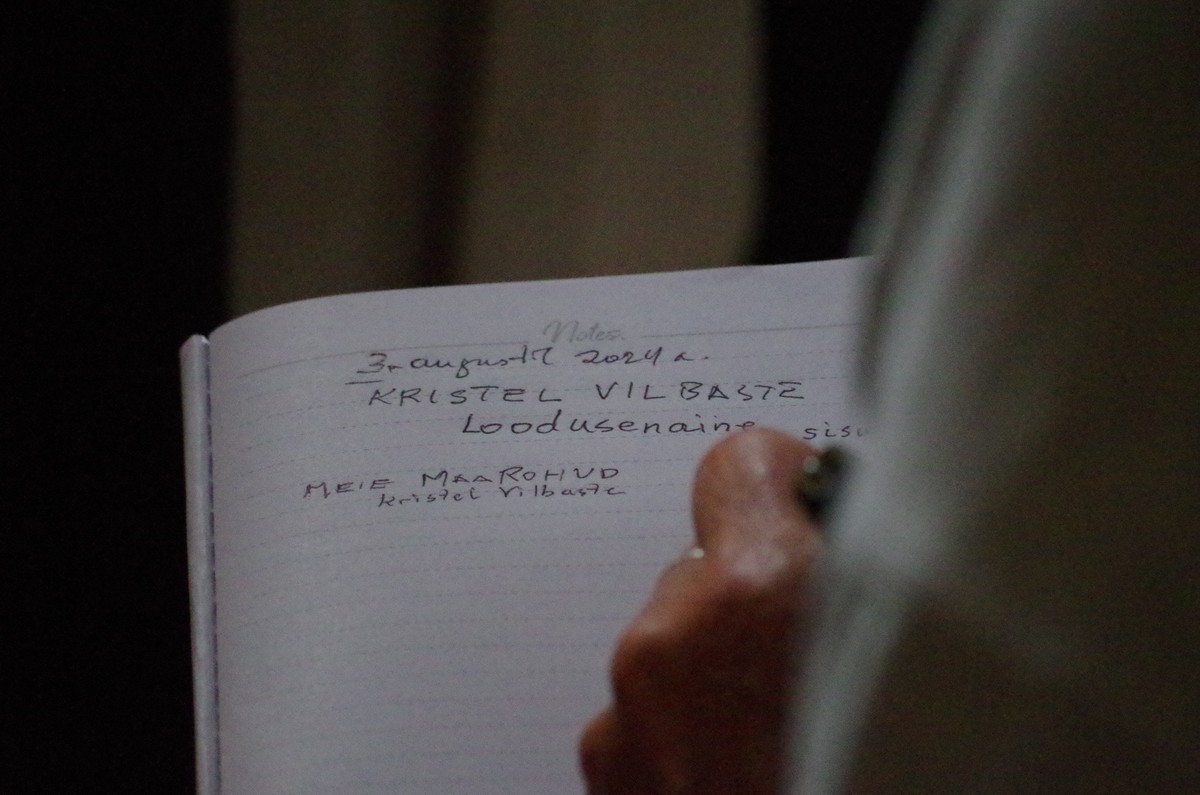 Notes.
3. augustil 2024 a.
KRISTEL VILBASTE
Loodusenaine
MEIE MAAROHUD
Kristel Vilbaste